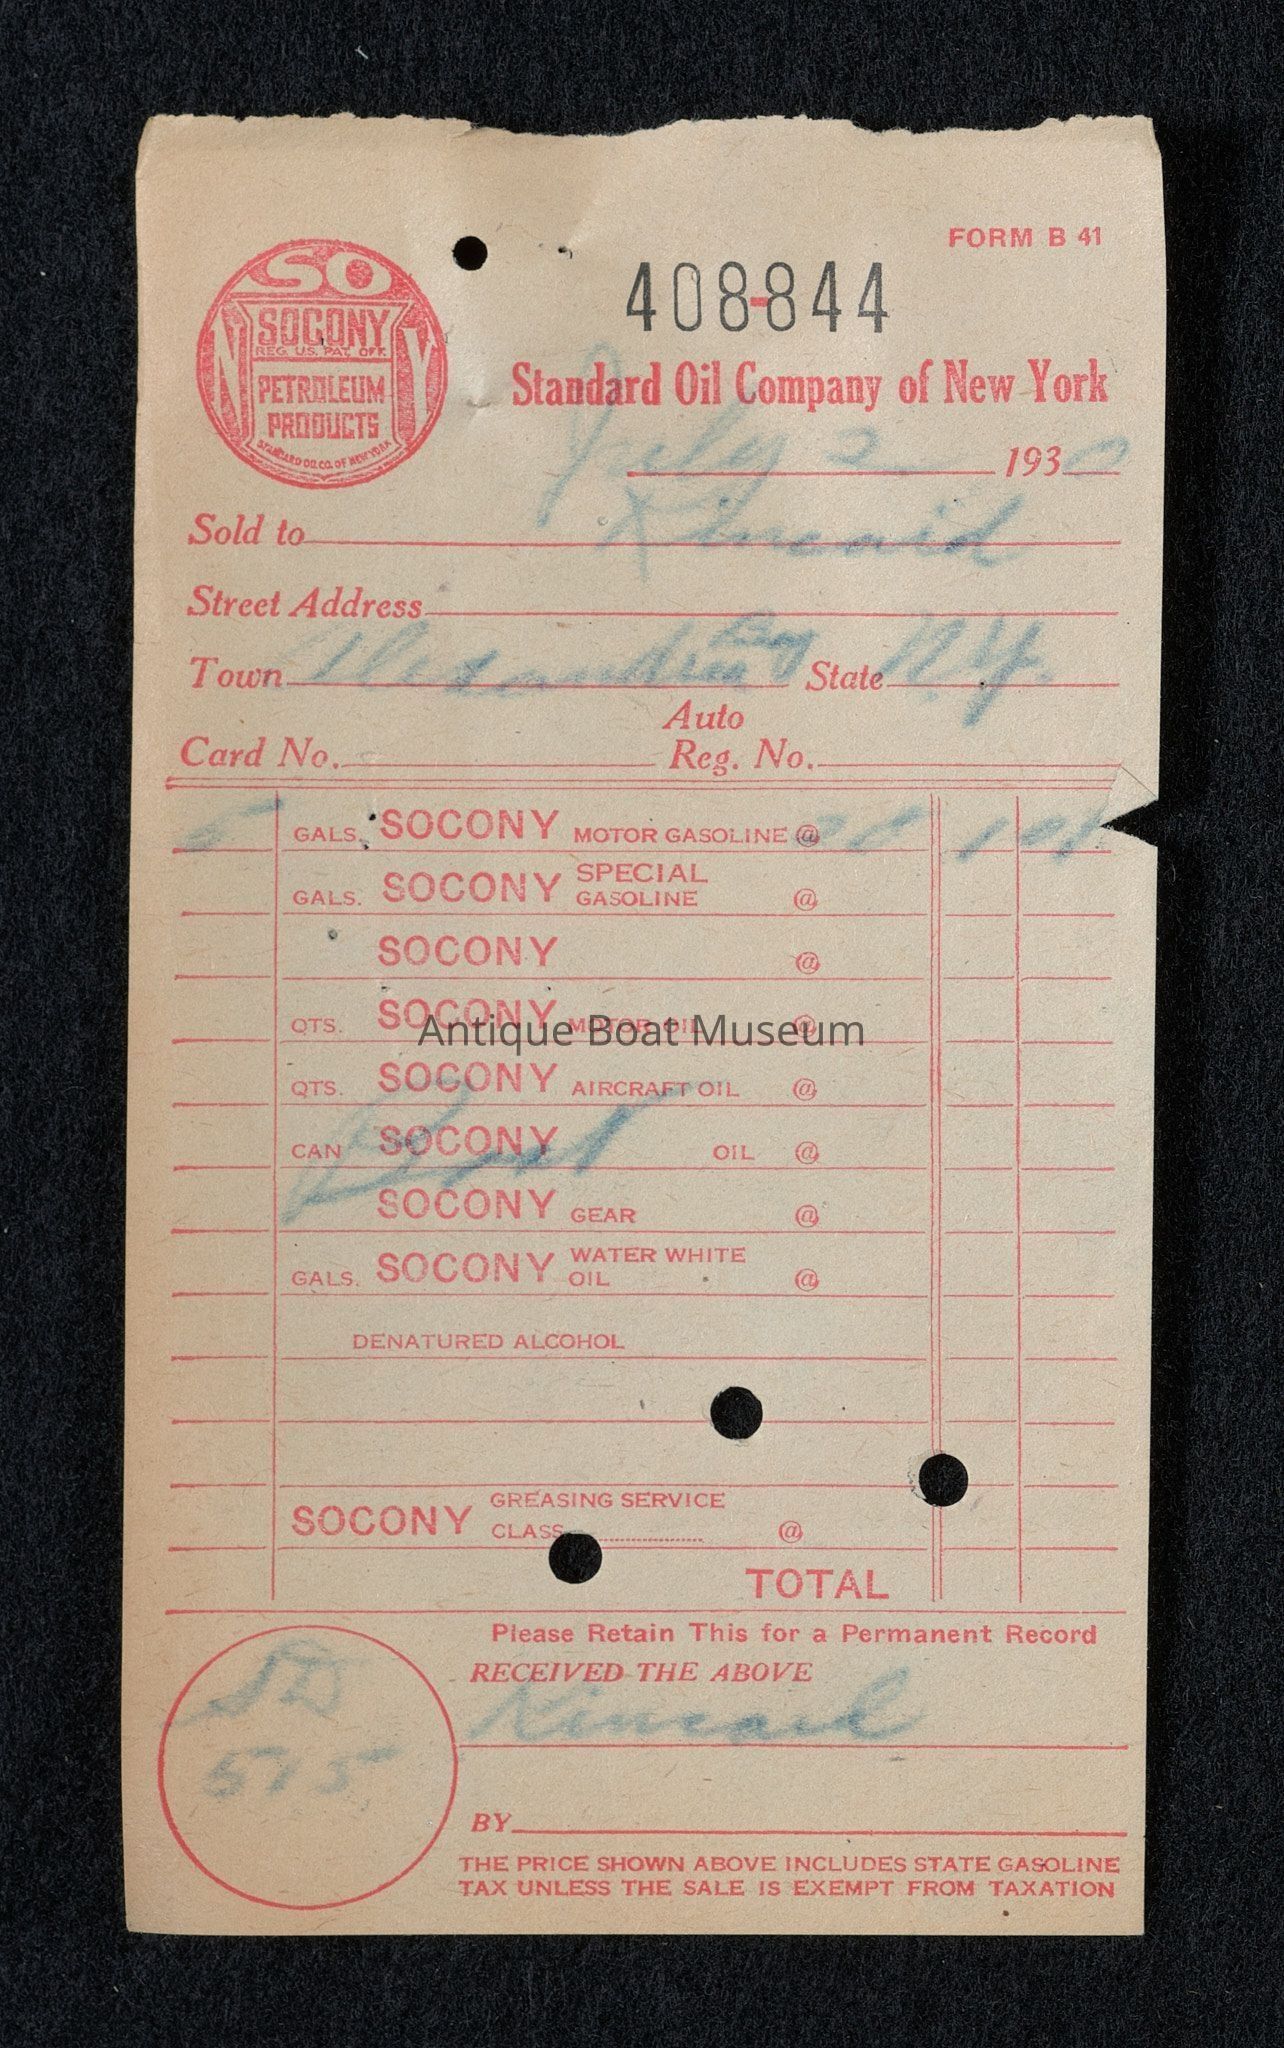 FORM B 41
408-844
SO
N Y
SOCONY
REG. U.S. PAT. OFF.
PETROLEUM
PRODUCTS
STANDARD OIL CO. OF NEW YORK
Standard Oil Company of New York
July 2 1930
Sold to Kincaid
Street Address
Town Alexandria Bay State N.Y.
Auto
Card No. Reg. No.
5 GALS. SOCONY MOTOR GASOLINE @
GALS. SOCONY SPECIAL GASOLINE @
SOCONY @
QTS. SOCONY MOTOR OIL @
Antique Boat Museum
QTS. SOCONY AIRCRAFT OIL @
Boat
CAN SOCONY OIL @
SOCONY GEAR @
GALS. SOCONY WATER WHITE OIL @
DENATURED ALCOHOL
SOCONY GREASING SERVICE
CLASS @
TOTAL
Please Retain This for a Permanent Record
RECEIVED THE ABOVE
Kincaid
515
BY
THE PRICE SHOWN ABOVE INCLUDES STATE GASOLINE
TAX UNLESS THE SALE IS EXEMPT FROM TAXATION